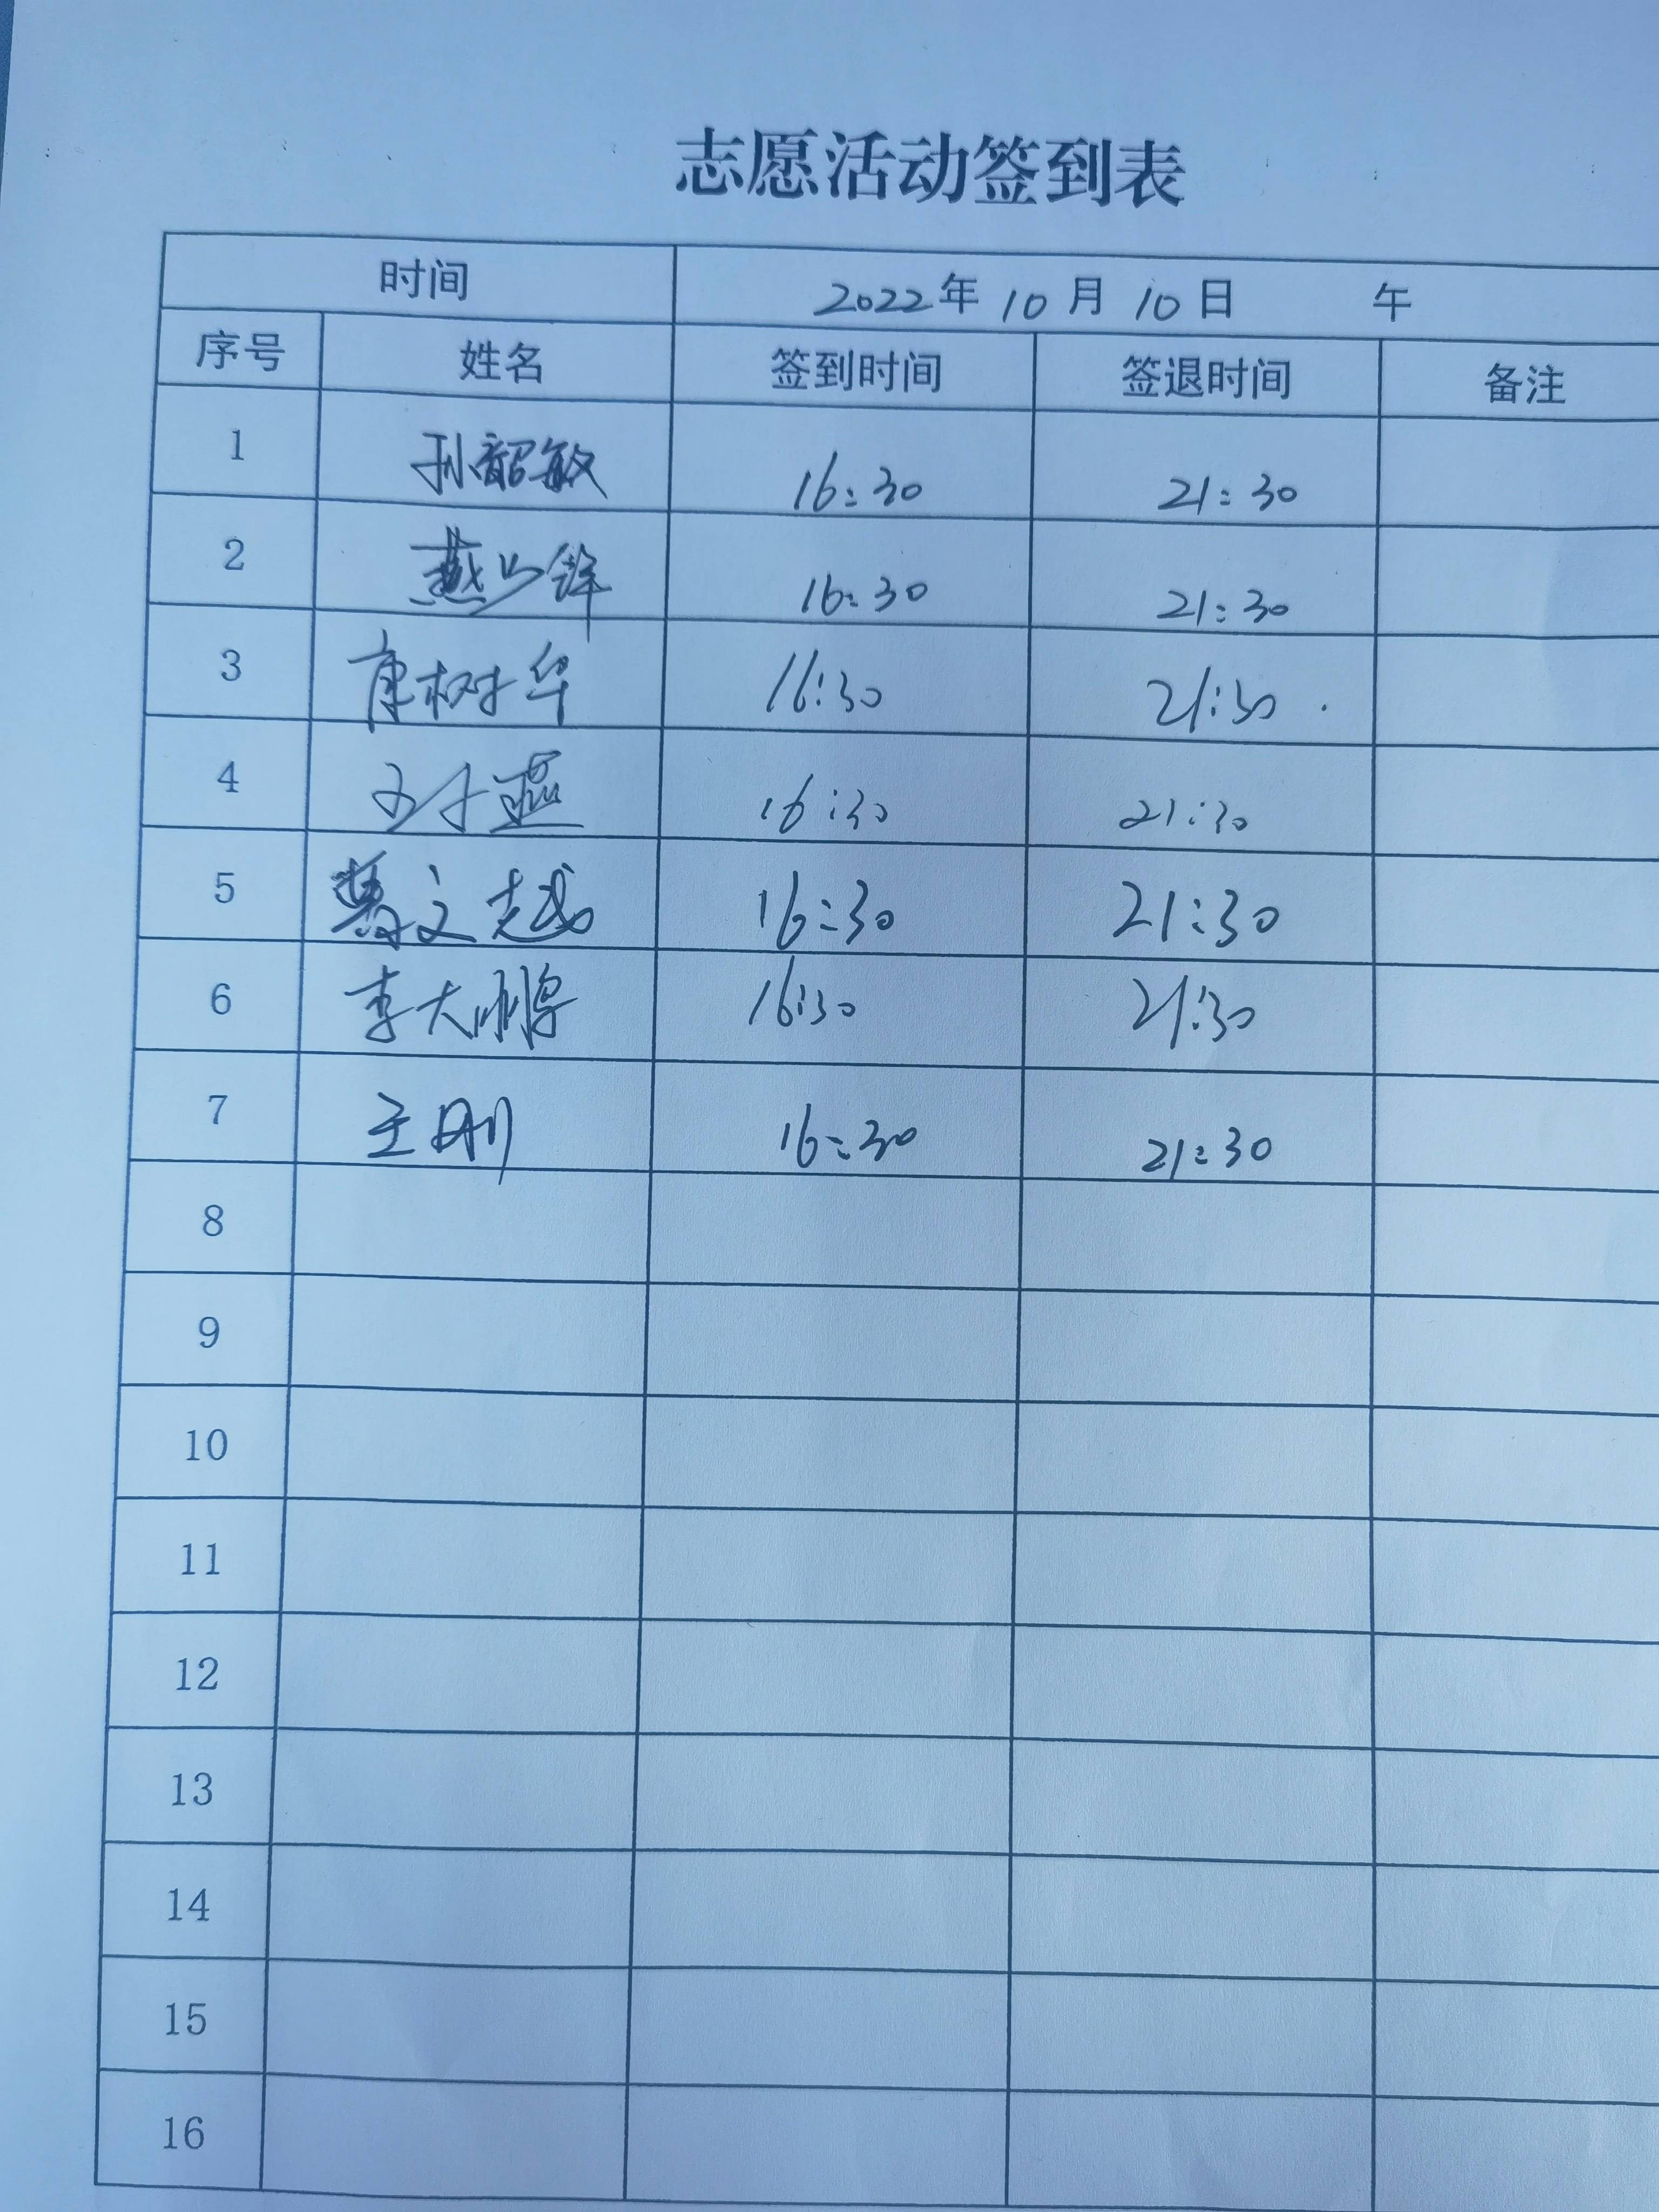 志愿活动签到表
时间 2022年 10月 10日 午
序号 姓名 签到时间 签退时间 备注
1 孙韶敏 16:30 21:30
2 燕少锋 16:30 21:30
3 康树华 16:30 21:30
4 16:30 21:30
5 文越 16:30 21:30
6 李大鹏 16:30 21:30
7 王刚 16:30 21:30
8
9
10
11
12
13
14
15
16